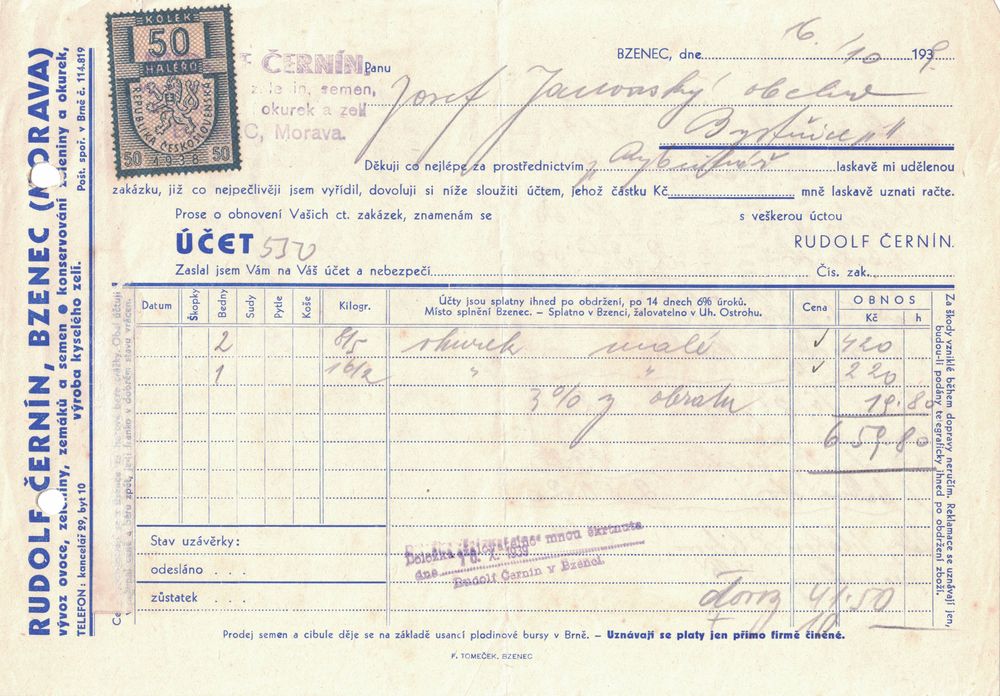 RUDOLF ČERNÍN, BZENEC (MORAVA)
vývoz ovoce, zeleniny, zemáků a semen ● konservování zeleniny a okurek,
výroba kyselého zelí.
TELEFON: kancelář 29, byt 10
Pošt. spoř. v Brně č. 114.819
KOLEK
50
HALÉŘŮ
REPUBLIKA ČESKOSLOVENSKÁ
50 1938 50
ČERNÍN,
semen,
okurek a zelí
C, Morava.
BZENEC, dne 16/10 1939.
Panu
Josef
Děkuji co nejlépe za prostřednictvím laskavě mi udělenou
zakázku, již co nejpečlivěji jsem vyřídil, dovoluji si níže sloužiti účtem, jehož částku Kč mně laskavě uznati račte.
Prose o obnovení Vašich ct. zakázek, znamenám se s veškerou úctou
ÚČET 530 RUDOLF ČERNÍN.
Zaslal jsem Vám na Váš účet a nebezpečí Čís. zak.
Datum Škopky Bedny Sudy Pytle Koše Kilogr.
Účty jsou splatny ihned po obdržení, po 14 dnech 6% úroků.
Místo splnění Bzenec. – Splatno v Bzenci, žalovatelno v Uh. Ostrohu.
Cena OBNOS
Kč h
2 8/5 okurek malé ✓ 420
1 " " ✓ 220
3% z obratu 19.80
659.80
Stav uzávěrky:
odesláno . . .
zůstatek . . .
Doložka mnou škrtnuta
dne X. 1939
Rudolf Černín v Bzenci
41.50
10
Za škody vzniklé během dopravy neručím. Reklamace se uznávají jen,
budou-li podány telegraficky ihned po obdržení zboží.
Prodej semen a cibule děje se na základě usancí plodinové bursy v Brně. – Uznávají se platy jen přímo firmě činěné.
F. TOMEČEK, BZENEC